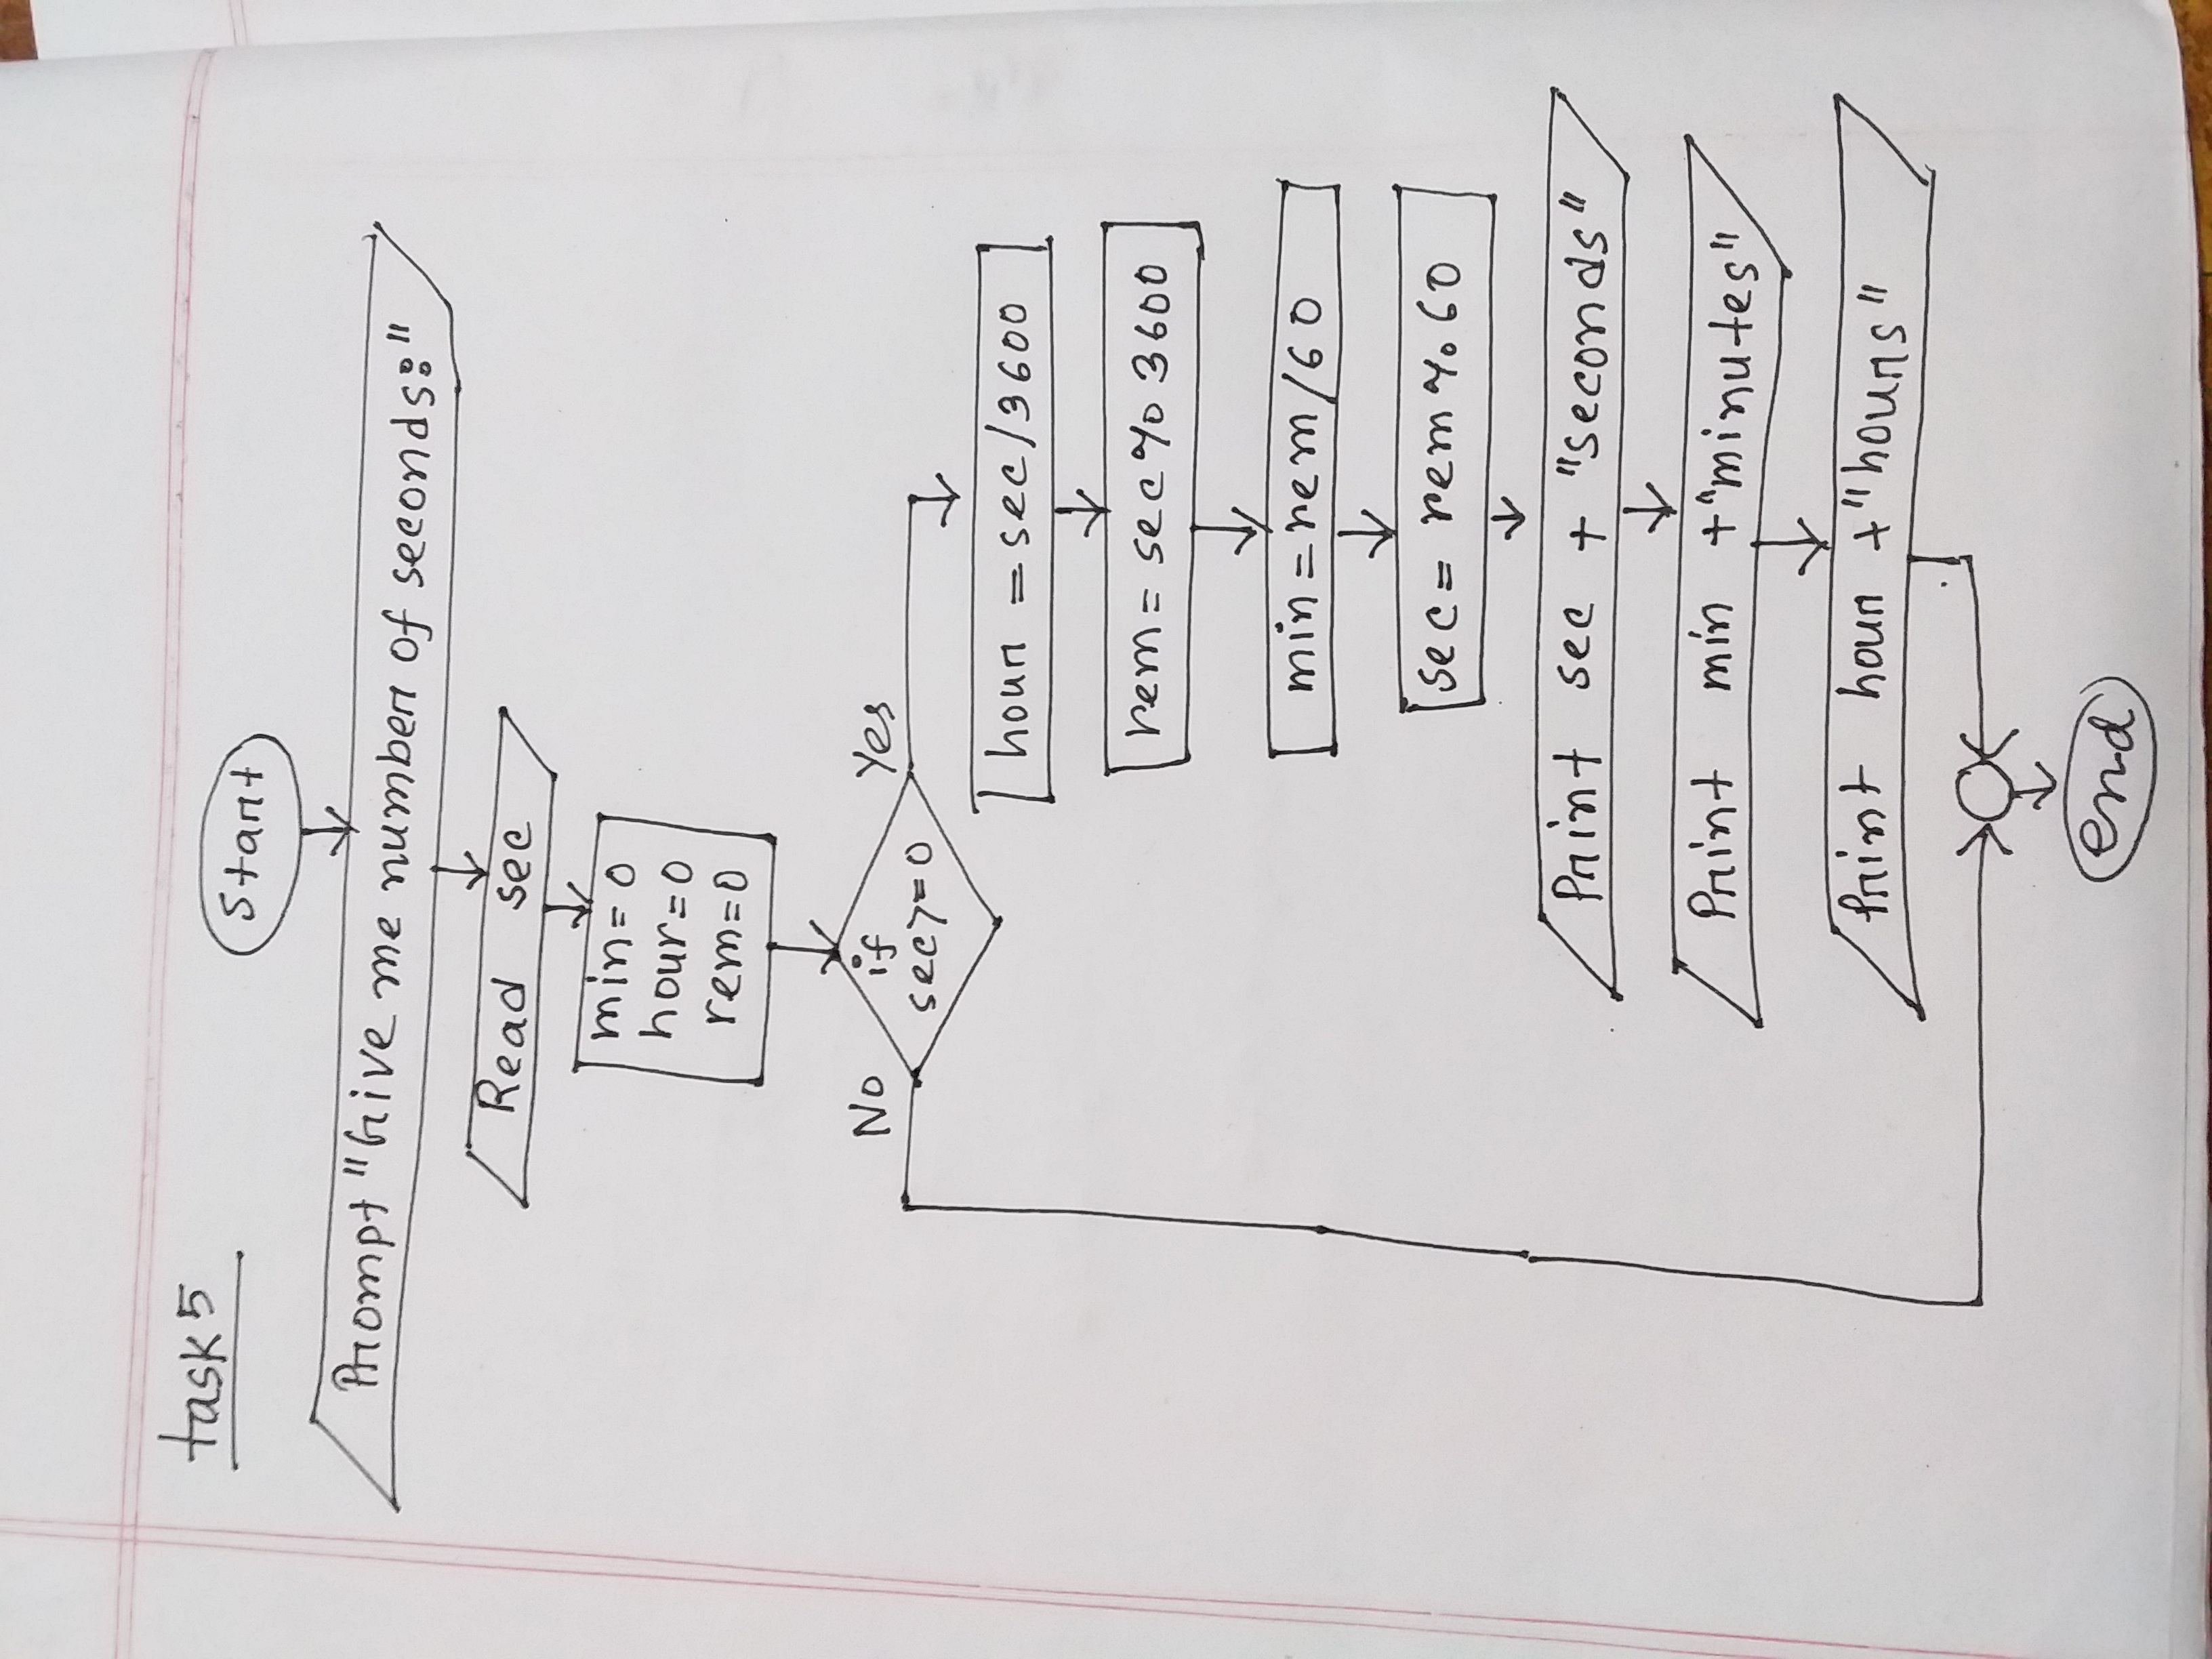 task 5
Start
Prompt "Give me number of seconds:"
Read sec
min=0
hour=0
rem=0
No
if
sec>=0
Yes
hour = sec/3600
rem = sec % 3600
min = rem/60
sec = rem % 60
Print sec + "seconds"
Print min + "minutes"
Print hour + "hours"
end